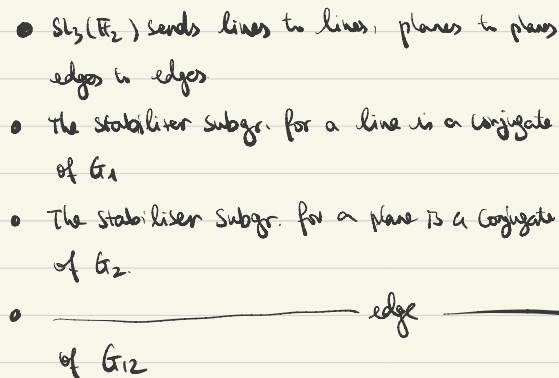 • SL₃(𝔽₂) sends lines to lines, planes to planes
edges to edges
• The stabiliser subgr. for a line is a conjugate
of G₁
• The stabiliser subgr. for a plane is a conjugate
of G₂.
• ——— edge ———
of G₁₂